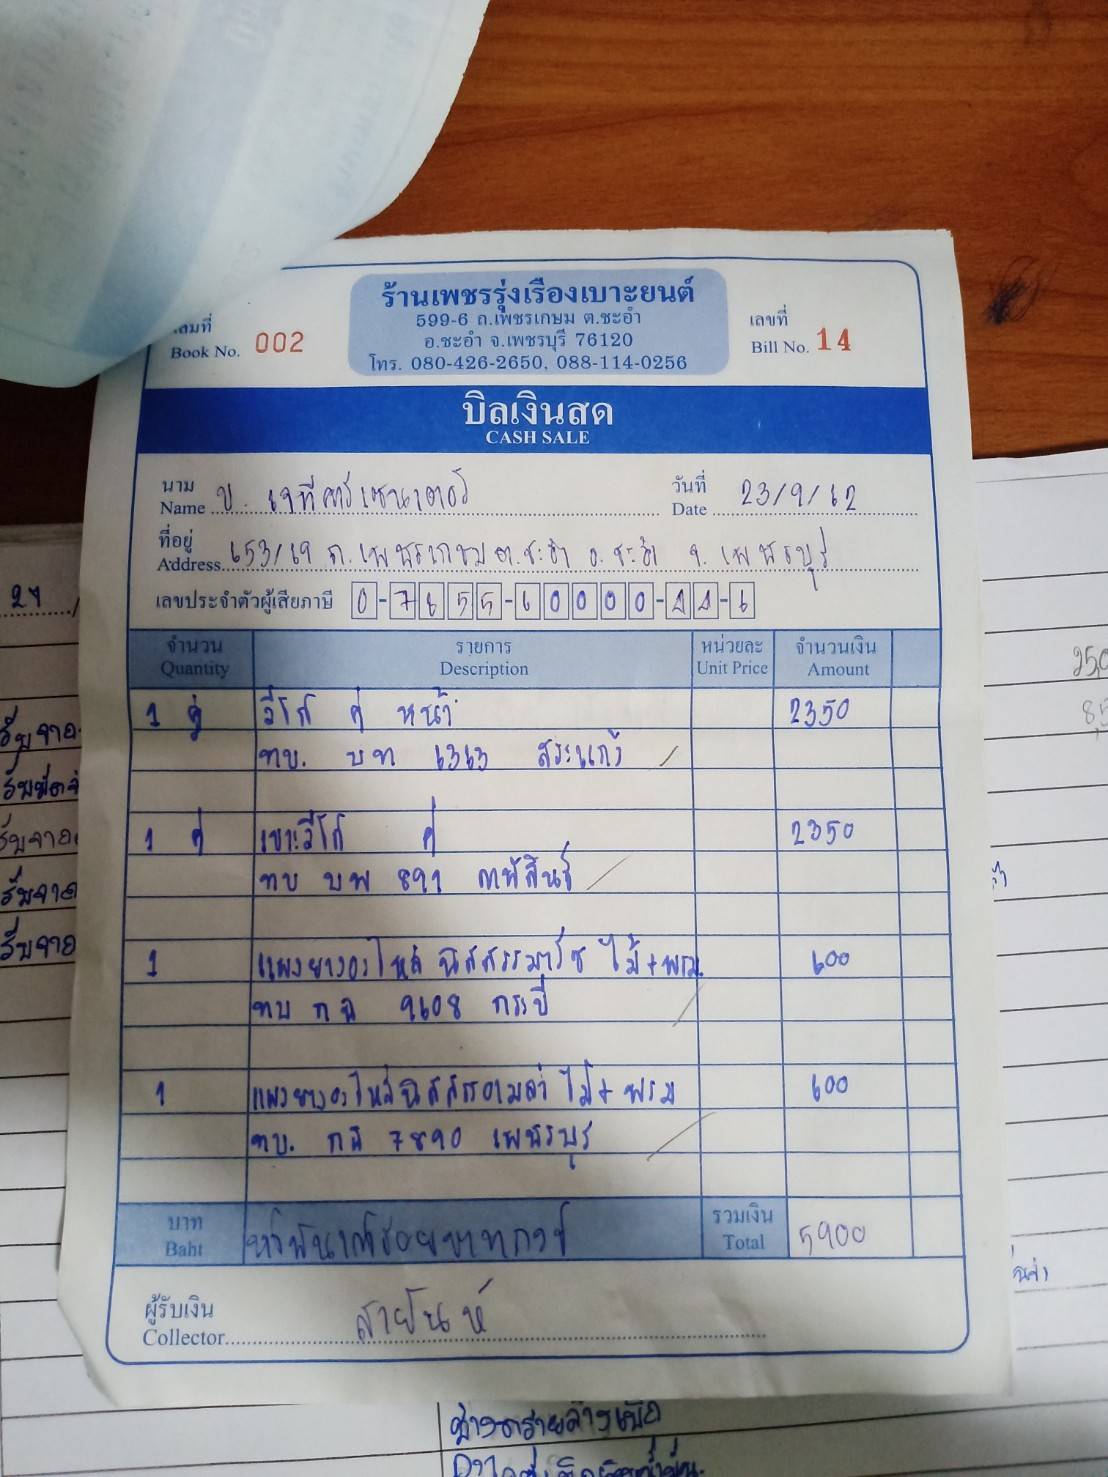 ร้านเพชรรุ่งเรืองเบาะยนต์
599-6 ถ.เพชรเกษม ต.ชะอำ
อ.ชะอำ จ.เพชรบุรี 76120
โทร. 080-426-2650, 088-114-0256
Book No. 002
เลขที่
Bill No. 14
บิลเงินสด
CASH SALE
นาม
Name บ. เจทีคาร์เซนเตอร์
วันที่
Date 23/9/62
ที่อยู่
Address 653/69 ถ.เพชรเกษม ต.ชะอำ อ.ชะอำ จ.เพชรบุรี
เลขประจำตัวผู้เสียภาษี 0-7655-60000-44-6
จำนวน รายการ หน่วยละ จำนวนเงิน
Quantity Description Unit Price Amount
1 คู่ วีโก้ คู่ หน้า 2350
ทบ. บท 6363 สระแก้ว
1 คู่ เบาะวีโก้ คู่ 2350
ทบ บพ 891 กาฬสินธุ์
1 แผงยางอะไหล่ นิสสันมาร์ช ไม้+พรม 600
ทบ กฉ 9608 กระบี่
1 แผงยางอะไหล่นิสสันอเมล่า ไม้+พรม 600
ทบ. กฉ 7890 เพชรบุรี
บาท ห้าพันเก้าร้อยบาทถ้วน รวมเงิน 5900
Baht Total
ผู้รับเงิน
Collector สายันห์